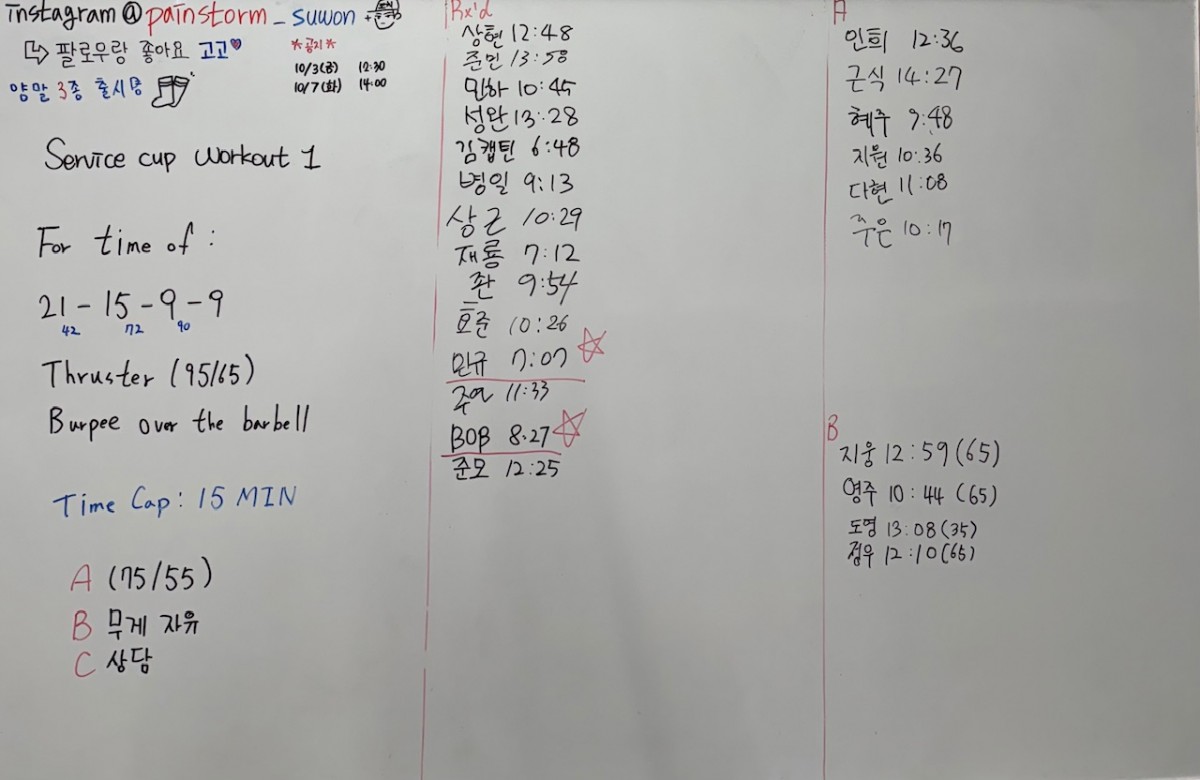 instagram@painstorm_suwon
팔로우랑 좋아요 고고
*공지*
10/3(금) 12:30
10/7(화) 14:00
양말 3종 출시
Service cup Workout 1
For time of :
21 - 15 - 9 - 9
42 72 90
Thruster (95/65)
Burpee over the barbell
Time Cap : 15 MIN
A (75/55)
B 무게 자유
C 상담
Rx'd
상현 12:48
준민 13:58
민하 10:45
성완 13:28
김캡틴 6:48
병일 9:13
상근 10:29
재룡 7:12
좐 9:54
효준 10:26
민규 7:07
주여 11:33
BOB 8.27
준모 12:25
A
인희 12:36
근식 14:27
혜주 9:48
지원 10:36
다현 11:08
주은 10:17
B
지웅 12:59(65)
영주 10:44 (65)
도영 13:08(35)
정우 12:10(65)